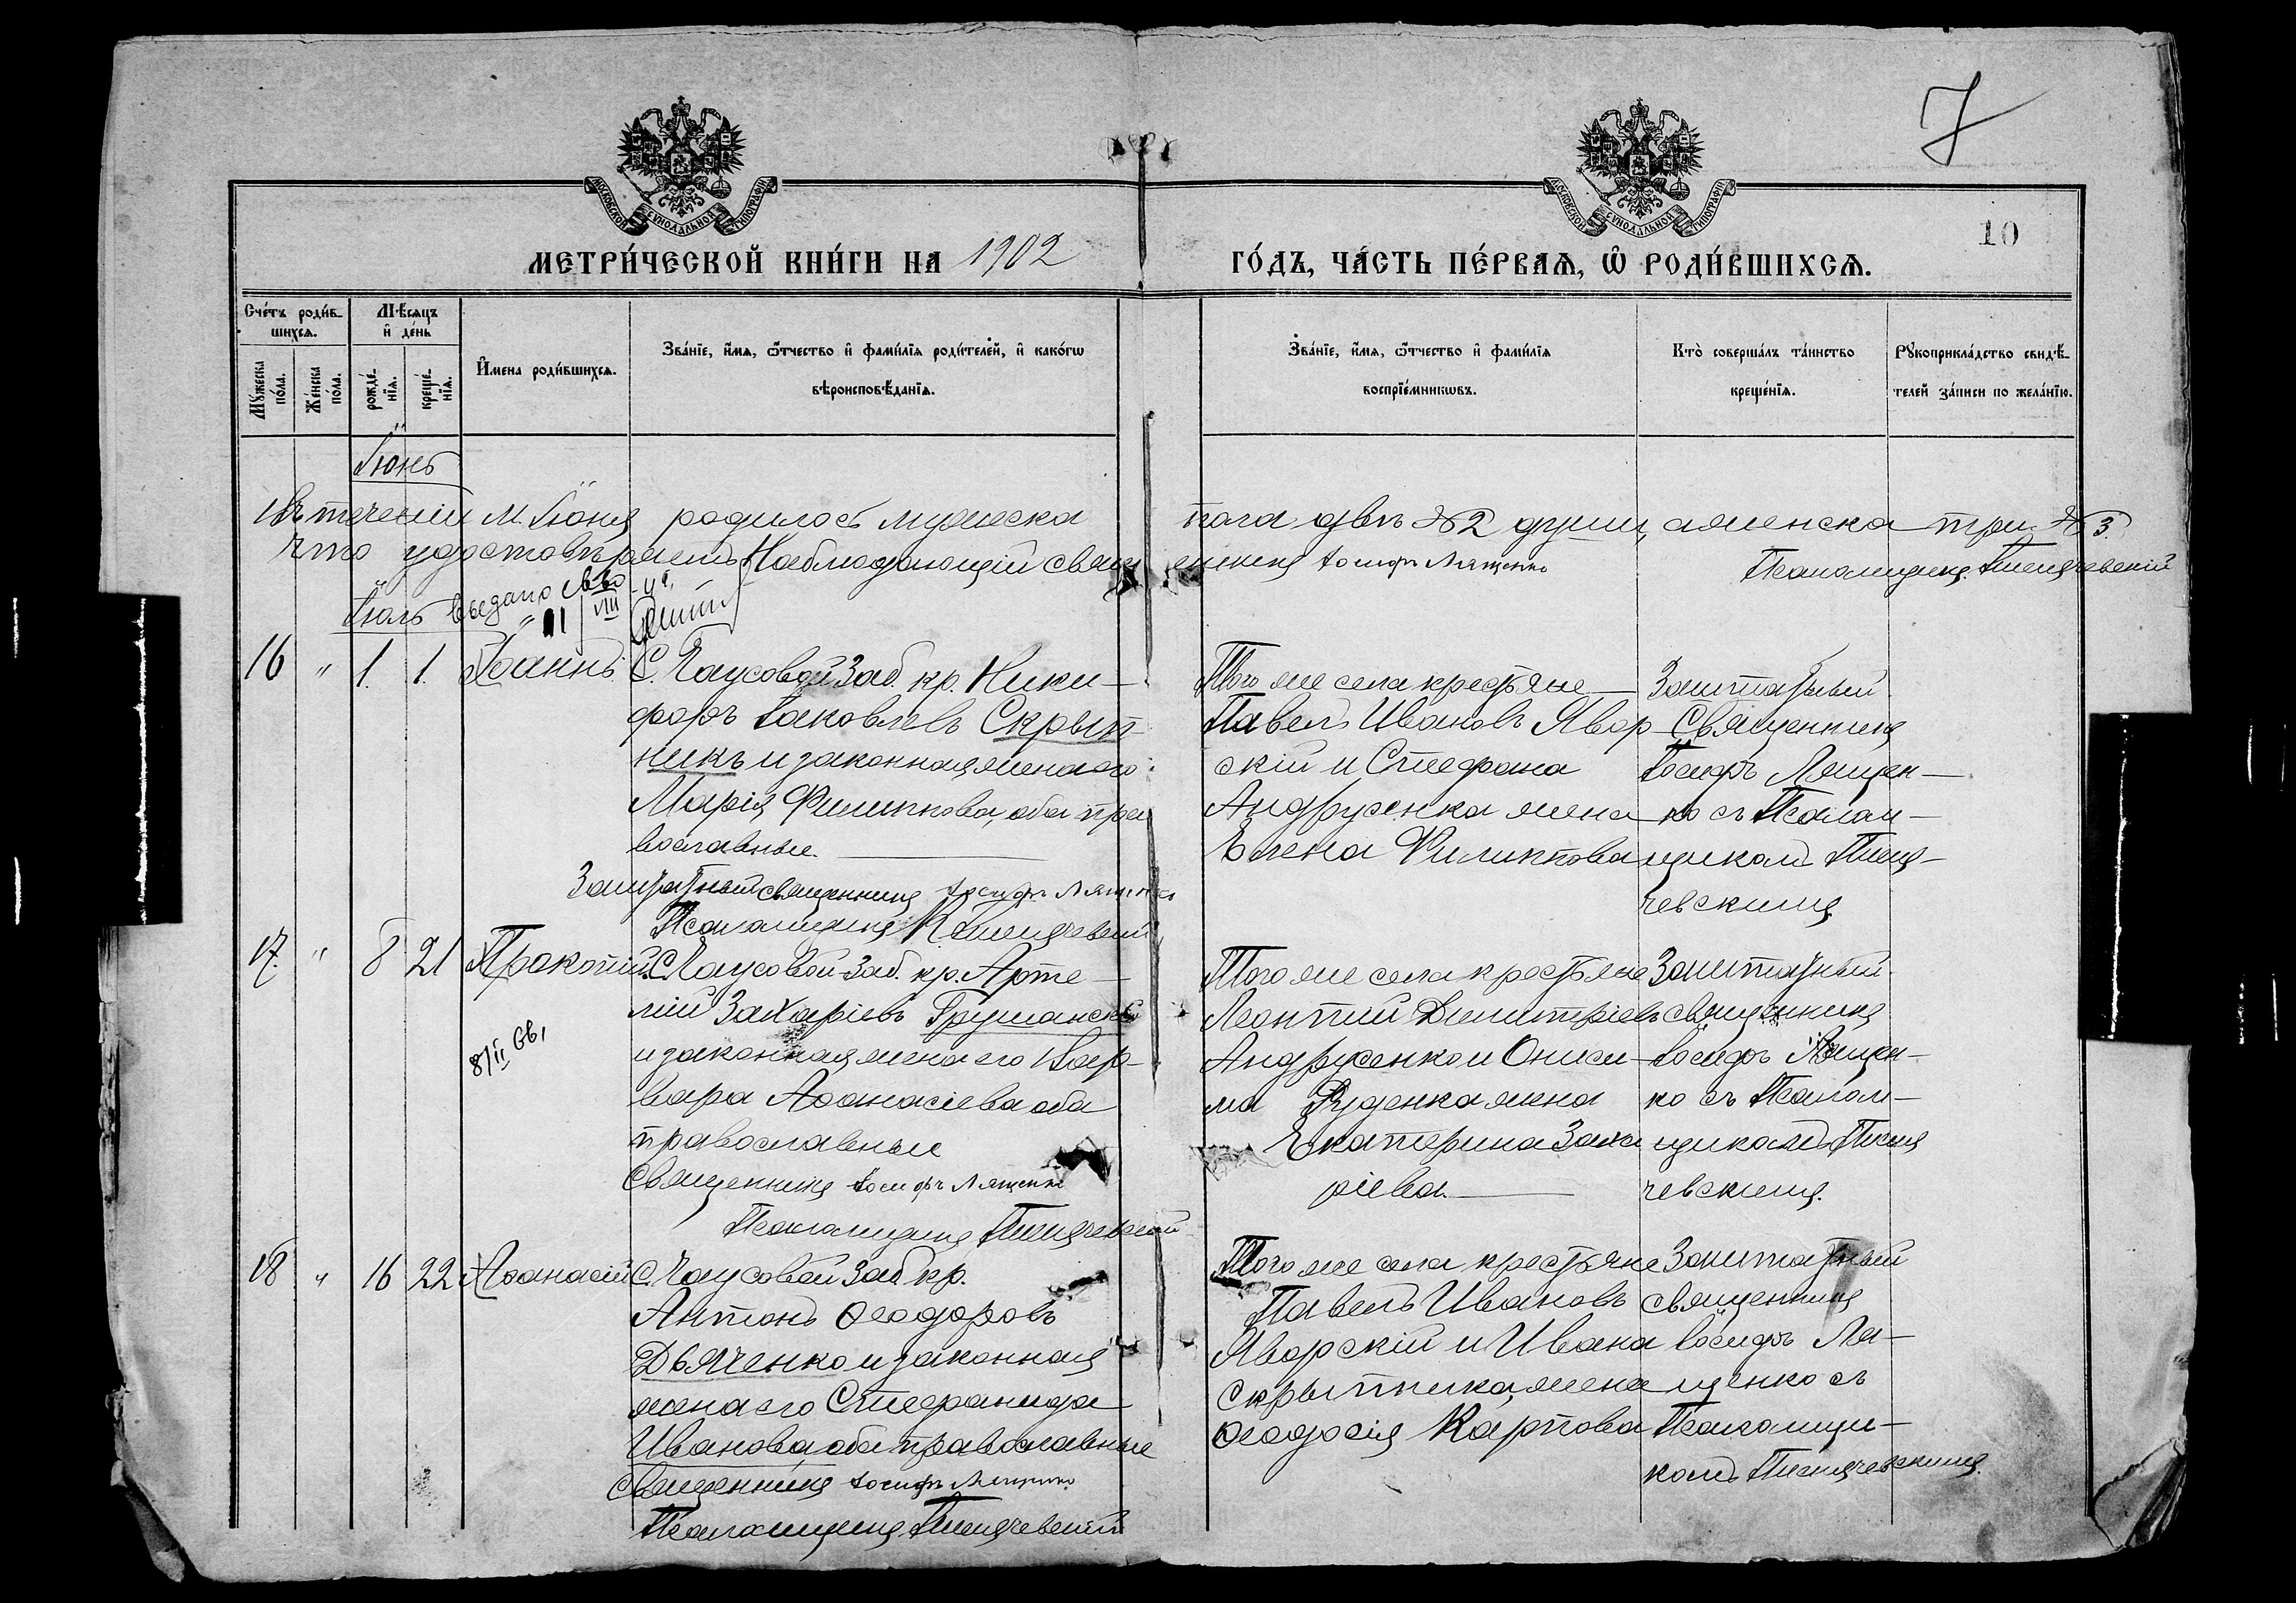 7
10
МОСКОВСКОЙ СѴНОДАЛЬНОЙ ТИПОГРАФІИ
МОСКОВСКОЙ СѴНОДАЛЬНОЙ ТИПОГРАФІИ
МЕТРИ́ЧЕСКОЙ КНИ́ГИ НА 1902 ГО́ДЪ, ЧА́СТЬ ПЕ́РВАѦ, Ѡ РОДИ́ВШИХСѦ.
Сче́тъ роди́в-
шихсѧ.
Мꙋжеска по́ла.
Же́нска по́ла.
Мѣсѧцъ
и де́нь
рожде́-
нїѧ.
креще́-
нїѧ.
И́мена роди́вшихсѧ.
Зва́нїе, и́мѧ, ѻ́тчество и фами́лїѧ роди́телей, и како́гѡ
вѣроисповѣ́данїѧ.
Зва́нїе, и́мѧ, ѻ́тчество и фами́лїѧ
воспрїе́мникѡвъ.
Кто̀ соверша́лъ та́инство
креще́нїѧ.
Рꙋкоприкла́дство свидѣ́-
телей за́писи по жела́нїю.
Іюнь
Въ теченіи м. Іюня родилось мужеска пола двѣ №2 души, а женска три №3.
Что удостовѣряетъ Наблюдающій священникъ Іосифъ Лященко Псаломщикъ
Іюль
выдано
11/VIII
16 " 1. 1. Іоаннъ
С. Чаусовой Заб. кр. Ники-
форъ Іаковлевъ Скрып-
никъ и законная жена его
Марія Филиппова, оба пра
вославные.
Того же села крестьяне
Павелъ Ивановъ Явор-
скій и Стефана
Андрусенка жена
Елена Филиппова
Заштатный
Священникъ
Іосифъ Лящен-
ко съ Псалом-
щикомъ
чевскимъ
Заштатный священникъ Іосифъ Лященко
Псаломщикъ
17. " 8 21 Прокопій
8/II
С. Чаусовой Заб. кр. Арте-
мій Захаріевъ
и законная жена его Вар-
вара Аѳанасіева оба
православные
Того же села крестьяне
Леонтий Димитріевъ
Андрусенко и Ониси-
ма Руденка жена
Екатерина Заха
ріева.
Заштатный
священникъ
Іосифъ Лящен-
ко съ Псалом-
щикомъ
чевскимъ.
Священникъ Іосифъ Лященко
Псаломщикъ
18 " 16 22 Аѳанасій
С. Чаусовой Заб кр.
Антонъ Ѳеодоровъ
Дьяченко и законная
жена его Стефанида
Иванова, оба православные
Того же села крестьяне
Павелъ Ивановъ
Яворскій и Ивана
Скрыпника, жена
Ѳеодосія Карпова
Заштатный
священникъ
Іосифъ Ля-
щенко съ
Псаломщи-
комъ
Священникъ Іосифъ Лященко
Псаломщикъ